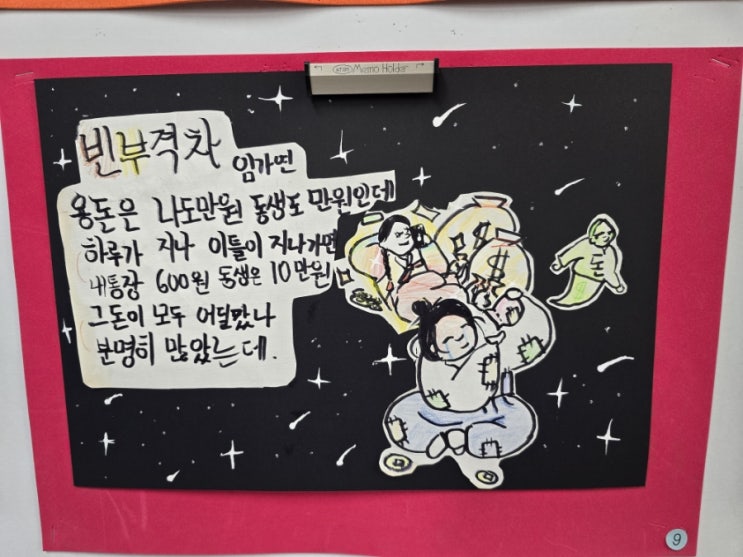 Memo Holder
빈부격차
임가연
용돈은 나도만원 동생도 만원인데
하루가 지나 이틀이 지나가면
내통장 600원 동생은 10만원
그돈이 모두 어딜갔나
분명히 많았는데.
돈
9